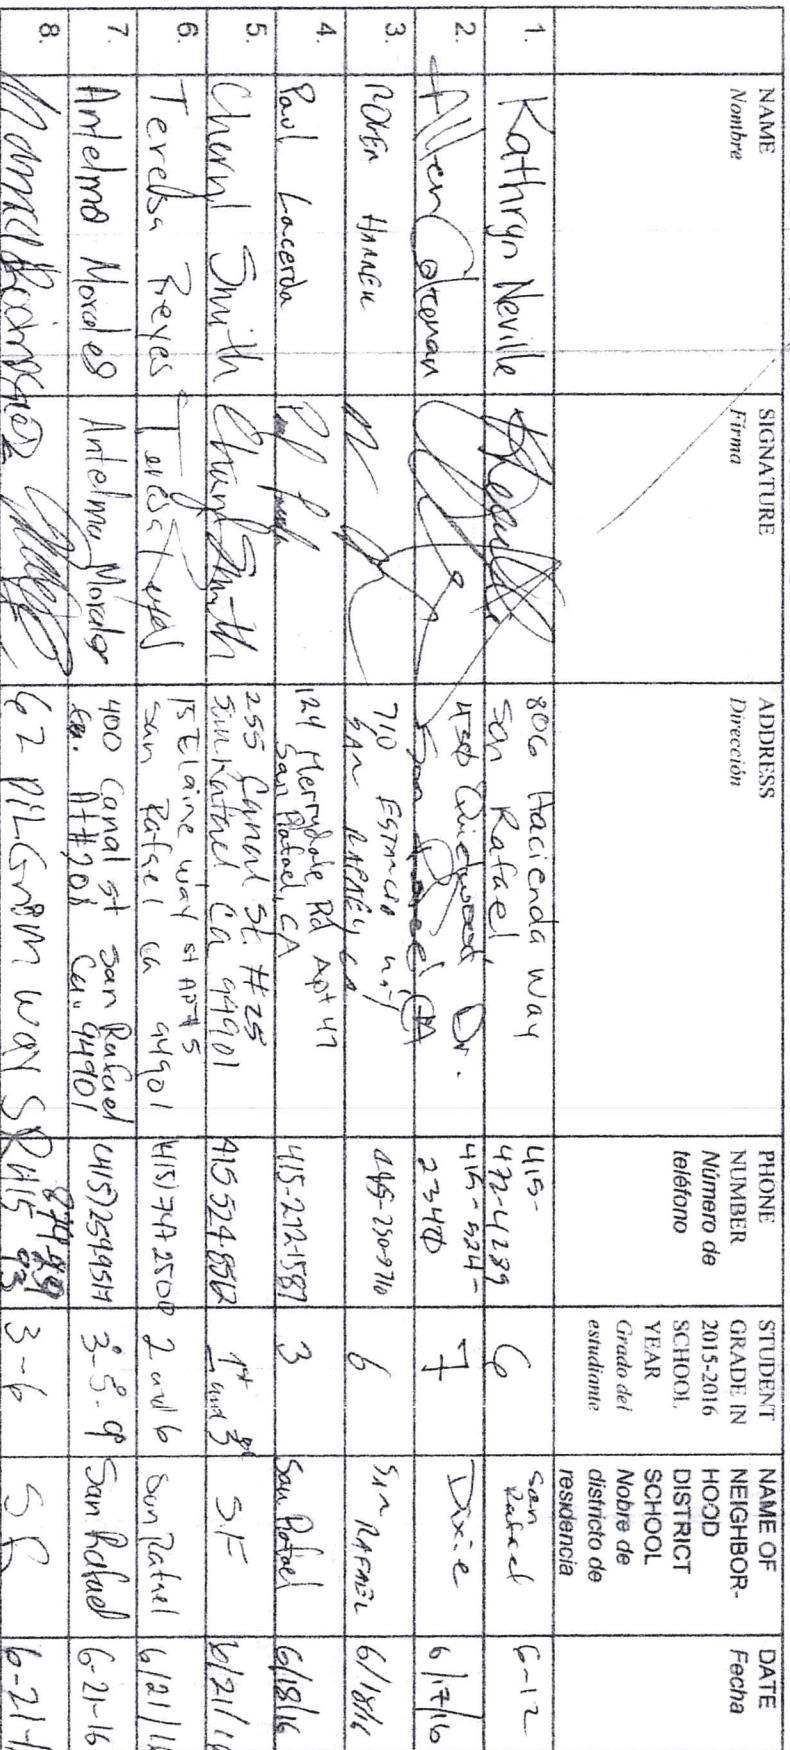 NAME
Nombre
SIGNATURE
Firma
ADDRESS
Dirección
PHONE
NUMBER
Número de
teléfono
STUDENT
GRADE IN
2015-2016
SCHOOL
YEAR
Grado del
estudiante
NAME OF
NEIGHBOR-
HOOD
DISTRICT
SCHOOL
Nobre de
districto de
residencia
DATE
Fecha
1.
Kathryn Neville
806 Hacienda Way
San Rafael,
415-
472-4289
6
San
Rafael
6-12
2.
Allen Coleman
430 Quietwood Dr.
San CA
415-524-
2340
7
Dixie
6/17/16
3.
710 Estancia Way
San Rafael CA
6
San Rafael
6/18/16
4.
Paul Lacerda
124 Merrydale Rd Apt 47
San Rafael, CA
415-272-1587
3
San Rafael
6/18/16
5.
Cheryl Smith
Cheryl Smith
255 Canal St. #25
San Rafael Ca 94901
415 524 8512
1st and 3rd
S.F
6/21/1
6.
Teresa Reyes
Teresa Reyes
15 Elaine way st Apt #5
San Rafael ca 94901
(415) 747 2500
2 and 6
San Rafael
6/21/1
7.
Antelmo Morales
Antelmo Morales
400 Canal st San Rafael
Apt #208 Ca. 94901
(415) 2599514
3-5-9
San Rafael
6-21-16
8.
62 PiLGRIM WAY SR
415
3-6
SR
6-21-1